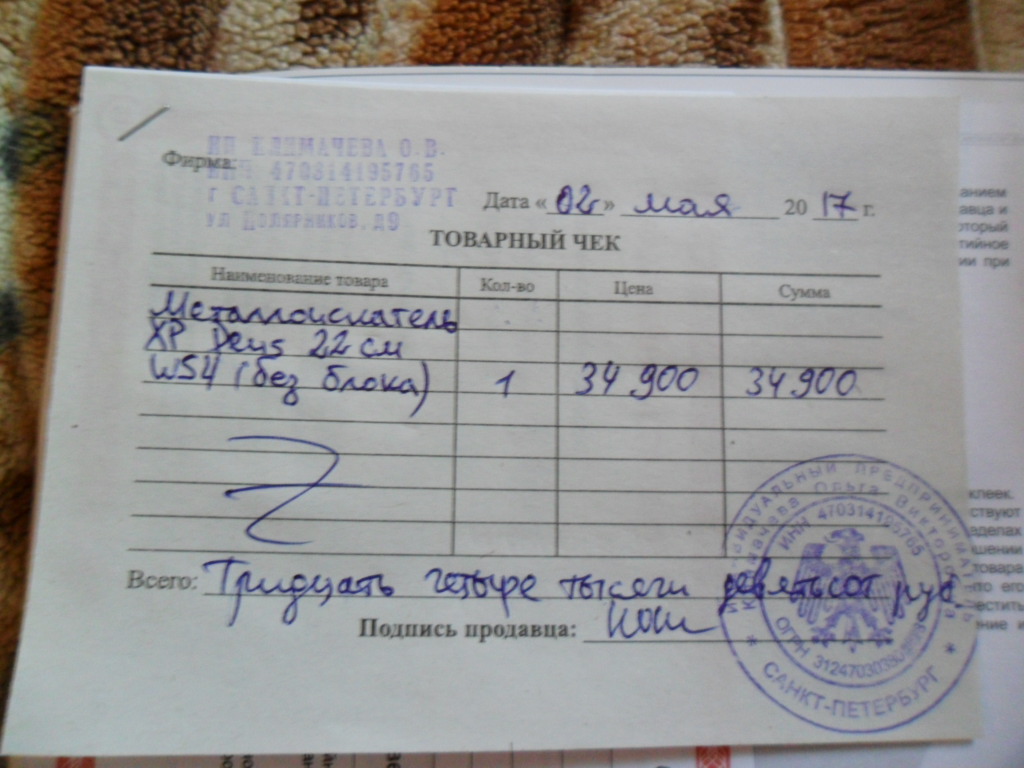 Фирма:
ИП КЛИМАЧЕВА О.В.
ИНН 470314195765
г САНКТ-ПЕТЕРБУРГ
ул Полярников, д9
Дата «02» мая 2017 г.
ТОВАРНЫЙ ЧЕК
Наименование товара Кол-во Цена Сумма
Металлоискатель
XP Deus 22 см
WS4 (без блока) 1 34 900 34 900
Всего: Тридцать четыре тысячи девятьсот руб.
Подпись продавца:
ПРЕДПРИНИМАТЕЛЬ
Ольга Викторовна
ИНН 470314195765
ОГРН
* САНКТ-ПЕТЕРБУРГ *
анием
авца и
оторый
ии при
клеек.
ствуют
еделах
товара